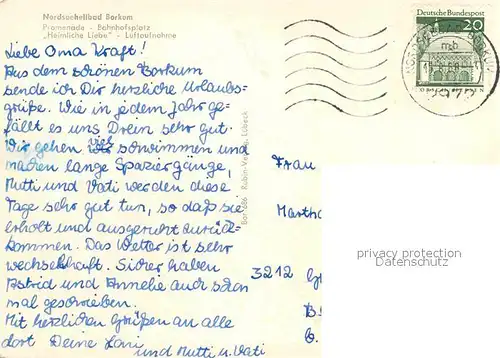 Nordseeheilbad Borkum
Promenade - Bahnhofsplatz
„Heimliche Liebe" - Luftaufnahme
Deutsche Bundespost
20
Liebe Oma Kraft!
Aus dem schönen Borkum
sende ich Dir herzliche Urlaubs-
grüße. Wie in jedem Jahr ge-
fällt es uns Drein sehr gut.
Wir gehen viel schwimmen und
machen lange Spaziergänge,
Mutti und Vati werden diese
Tage sehr gut tun, so daß sie
erholt und ausgeruht zurück-
kommen. Das Wetter ist sehr
wechselhaft. Sicher haben
Astrid und Annelie auch schon
mal geschrieben.
Mit herzlichen Grüßen an alle
dort Deine
und Mutti u. Vati
Bor 686 Rubin-Verlag, Lübeck
Frau
Martha
3212
privacy protection
Datenschutz